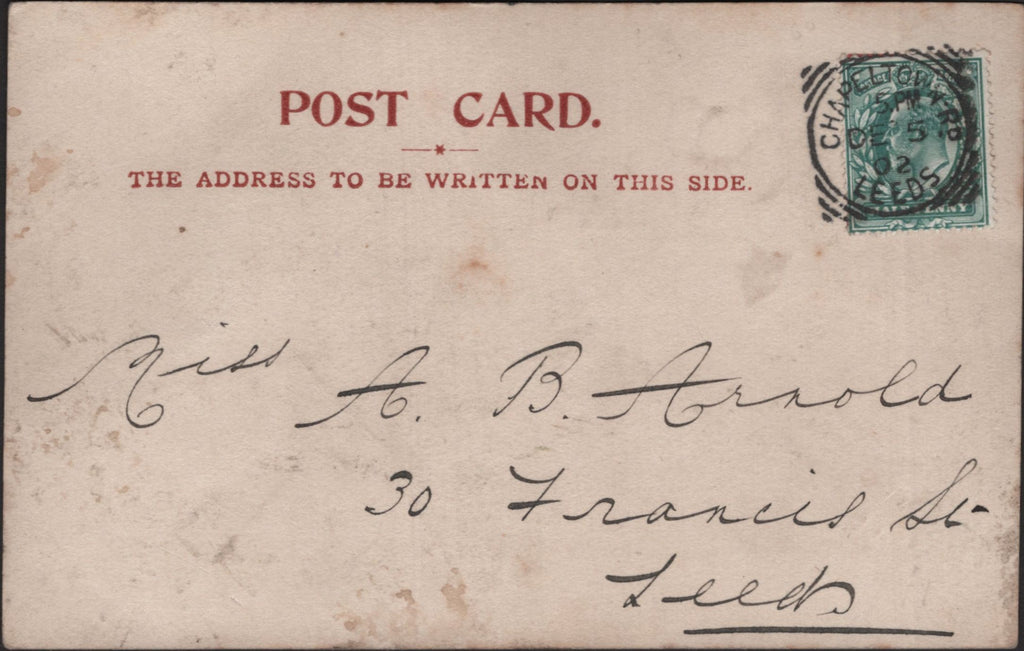 POST CARD.
THE ADDRESS TO BE WRITTEN ON THIS SIDE.
CHAPELTOWN RD
5 PM
DE 5
02
LEEDS
HALFPENNY
Miss A. B. Arnold
30 Francis St
Leeds